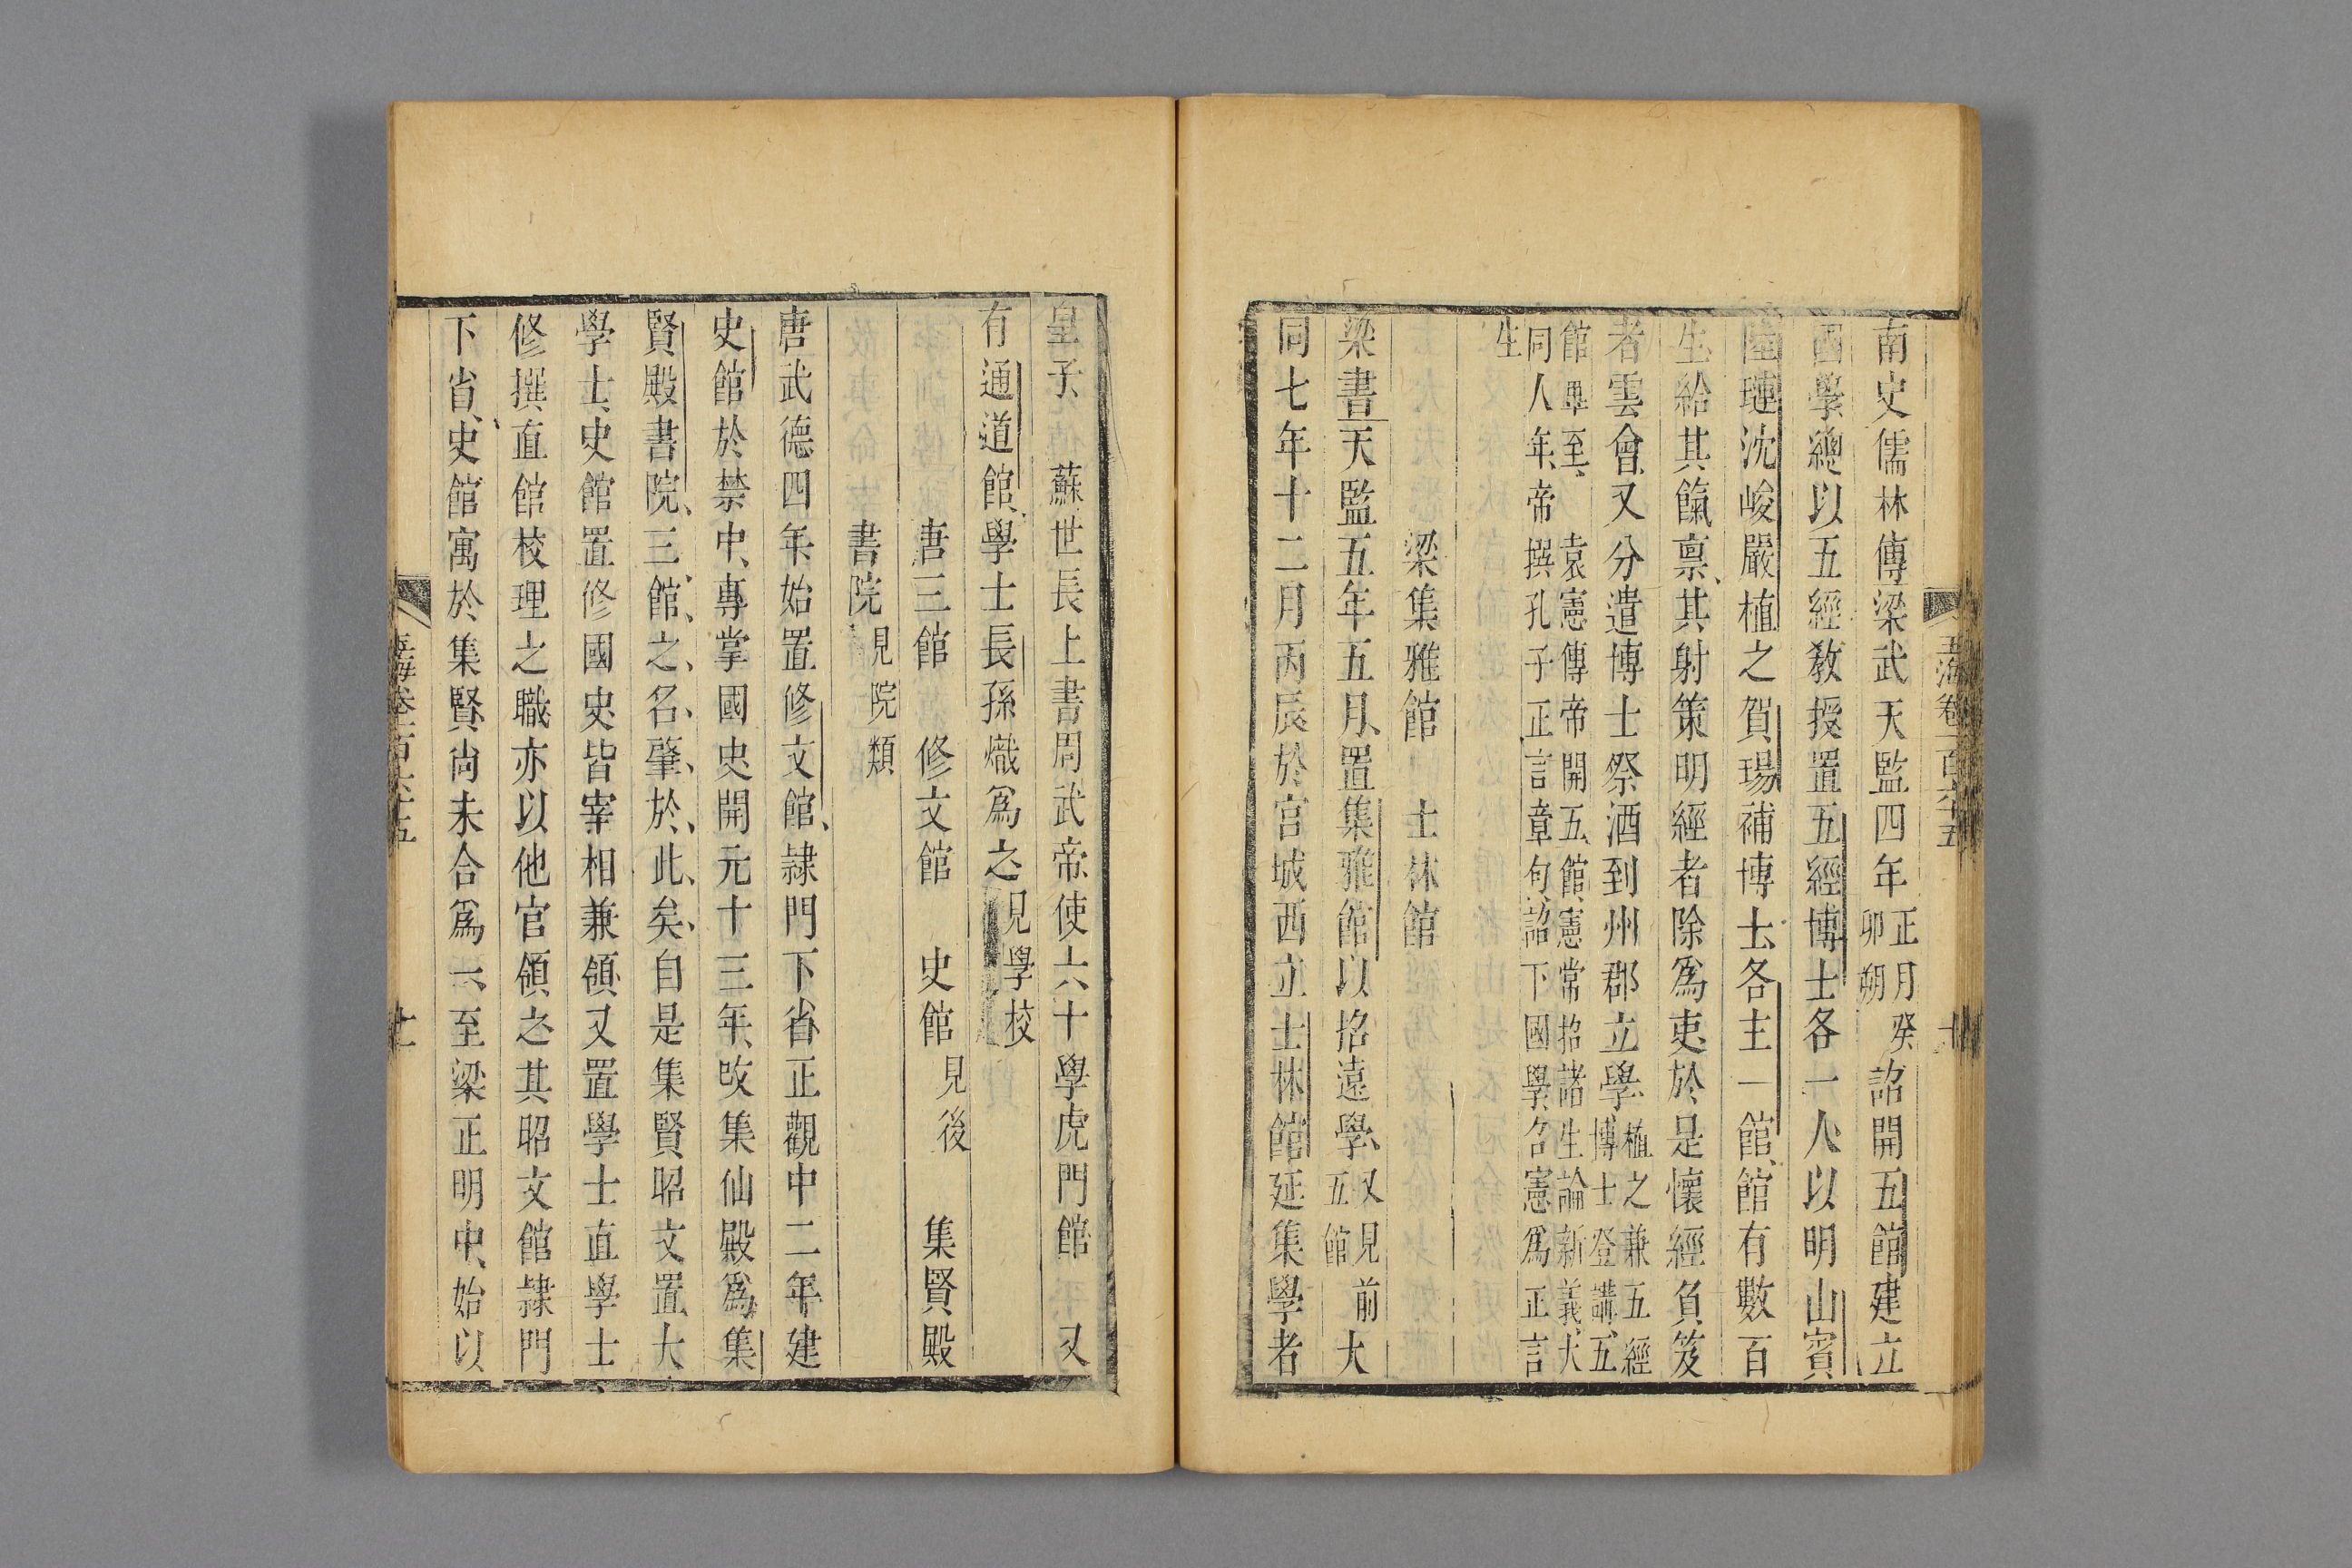 玉海卷一百六十五 十
南史儒林傳梁武天監四年正月癸卯朔詔開五館建立
國學總以五經教授置五經博士各一人以明山賓
陸璉沈峻嚴植之賀瑒補博士各主一館館有數百
生給其餼稟其射策明經者除爲吏於是懷經負笈
者雲會又分遣博士祭酒到州郡立學植之兼五經
博士登講五
館畢至 袁憲傳帝開五館憲常招諸生論新義大
同人年帝撰孔子正言章句詔下國學召憲爲正言
生
梁集雅館 士林館
梁書天監五年五月置集雅館以招遠學又見前五館大
同七年十二月丙辰於宮城西立士林館延集學者
皇子 蘇世長上書周武帝使六十學虎門館 又
有通道館學士長孫熾爲之見學校
唐三館 修文館 史館見後 集賢殿
書院見院類
唐武德四年始置修文館隷門下省正觀中二年建
史館於禁中專掌國史開元十三年改集仙殿爲集
賢殿書院三館之名肇於此矣自是集賢昭文置大
學士史館置修國史皆宰相兼領又置學士直學士
修撰直館校理之職亦以他官領之其昭文館隷門
下省史館寓於集賢尚未合爲一至梁正明中始以
玉海卷一百六十五 十一